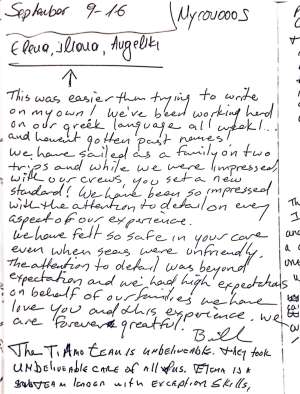 September 9-16
Elena, Iliana, Angeliki
This was easier than trying to write
on my own! We've been working hard
on our greek language all week!..
and havent gotten past names!
We have sailed as a family on two
trips and while we were impressed
with our crews you set a new
standard! We have been so impressed
with the attention to detail on every
aspect of our experience.
We have felt so safe in your care
even when seas were unfriendly.
The attention to detail was beyond
expectation and we had high expectations
on behalf of our families we have
love you and this experience. We
are forever greatful.
The team is unbelievable. They took
unbelievable care of all of us. is a
with exception skills,